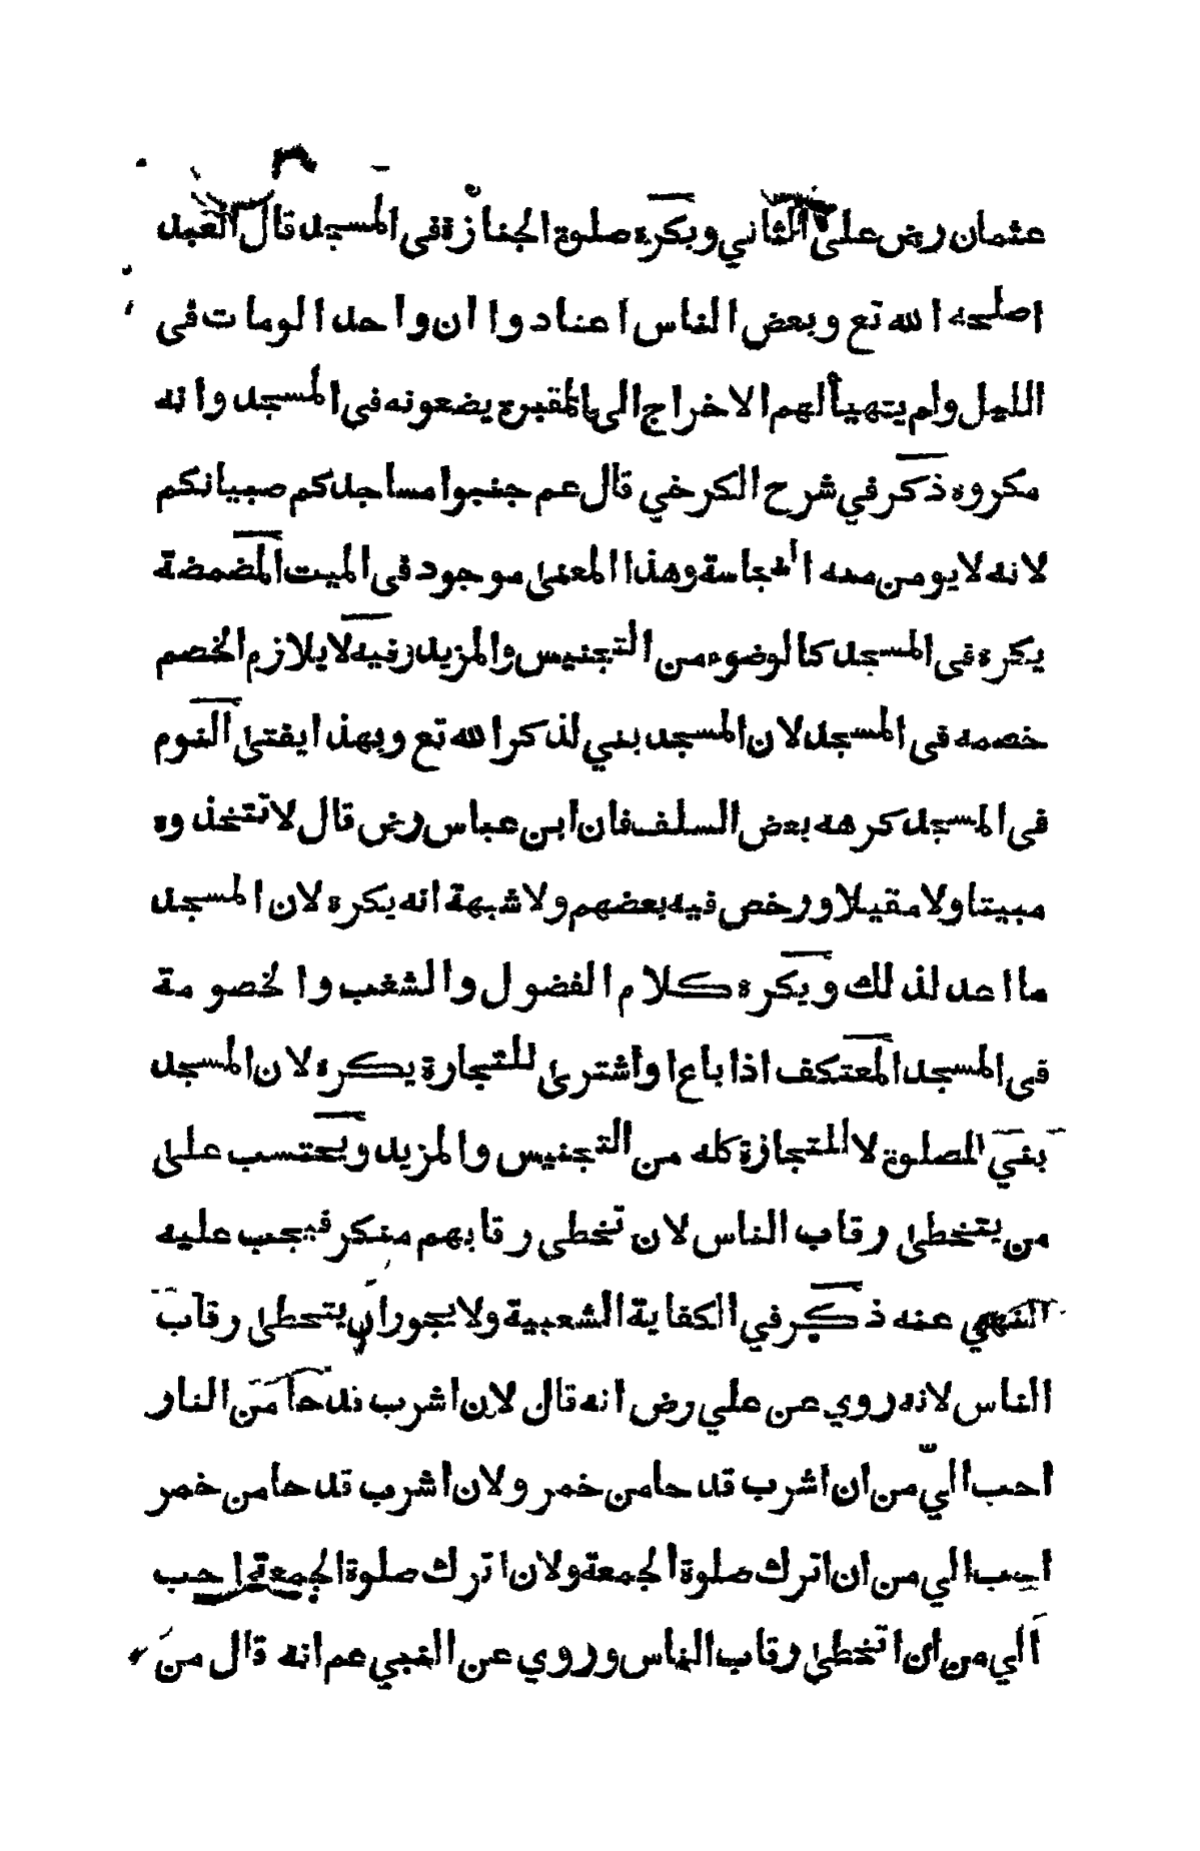 عثمان رض على الثاني ويكره صلوة الجنازة في المسجد قال العبد
اصلحه الله تع وبعض الناس اعتادوا ان واحد الومات في
الليل ولم يتهيأ لهم الاخراج الى المقبرة يضعونه في المسجد وانه
مكروه ذكر في شرح الكرخي قال عم جنبوا مساجدكم صبيانكم
لانه لا يومن منه النجاسة وهذا المعنى موجود في الميت المضمضة
يكره في المسجد كالوضوء من التجنيس والمزيد وفيه لا يلازم الخصم
خصمه في المسجد لان المسجد بني لذكر الله تع وبهذا يفتى النوم
في المسجد كرهه بعض السلف فان ابن عباس رض قال لا تتخذوه
مبيتا ولا مقيلا ورخص فيه بعضهم ولا شبهة انه يكره لان المسجد
ما اعد لذلك ويكره كلام الفضول والشغب والخصومة
في المسجد المعتكف اذا باع او اشترى للتجارة يكره لان المسجد
بني للصلوة لا للتجارة كله من التجنيس والمزيد ويحتسب على
من يتخطى رقاب الناس لان تخطي رقابهم منكر فيجب عليه
النهي عنه ذكر في الكفاية الشعبية ولا يجوز ان يتخطى رقاب
الناس لانه روي عن علي رض انه قال لان اشرب قدحا من النار
احب الي من ان اشرب قدحا من خمر ولان اشرب قدحا من خمر
احب الي من ان اترك صلوة الجمعة ولان اترك صلوة الجمعة احب
الي من ان اتخطى رقاب الناس وروي عن النبي عم انه قال من